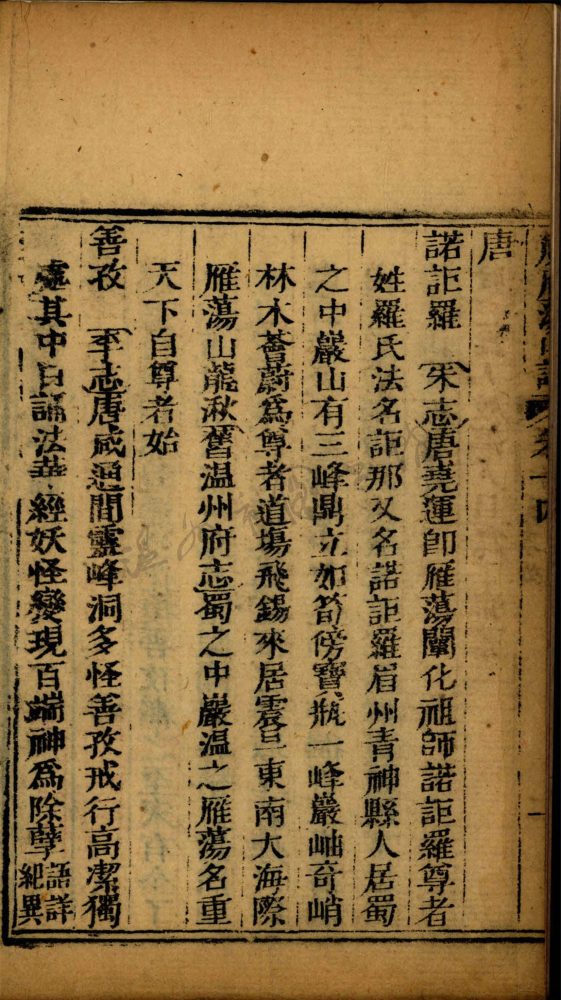 唐
諾詎羅 朱志唐堯運即雁蕩開化祖師諾詎羅尊者
姓羅氏法名詎那又名諾詎羅眉州青神縣人居蜀
之中巖山有三峰鼎立如筍傍寶瓶一峰巖岫奇峭
林木薈蔚為尊者道場飛錫來居震旦東南大海際
雁蕩山龍湫舊温州府志蜀之中巖温之雁蕩名重
天下自尊者始
善孜 李志唐咸通間靈峰洞多怪善孜戒行高潔獨
處其中日誦法華經妖怪變現百端神為除孽語詳紀異